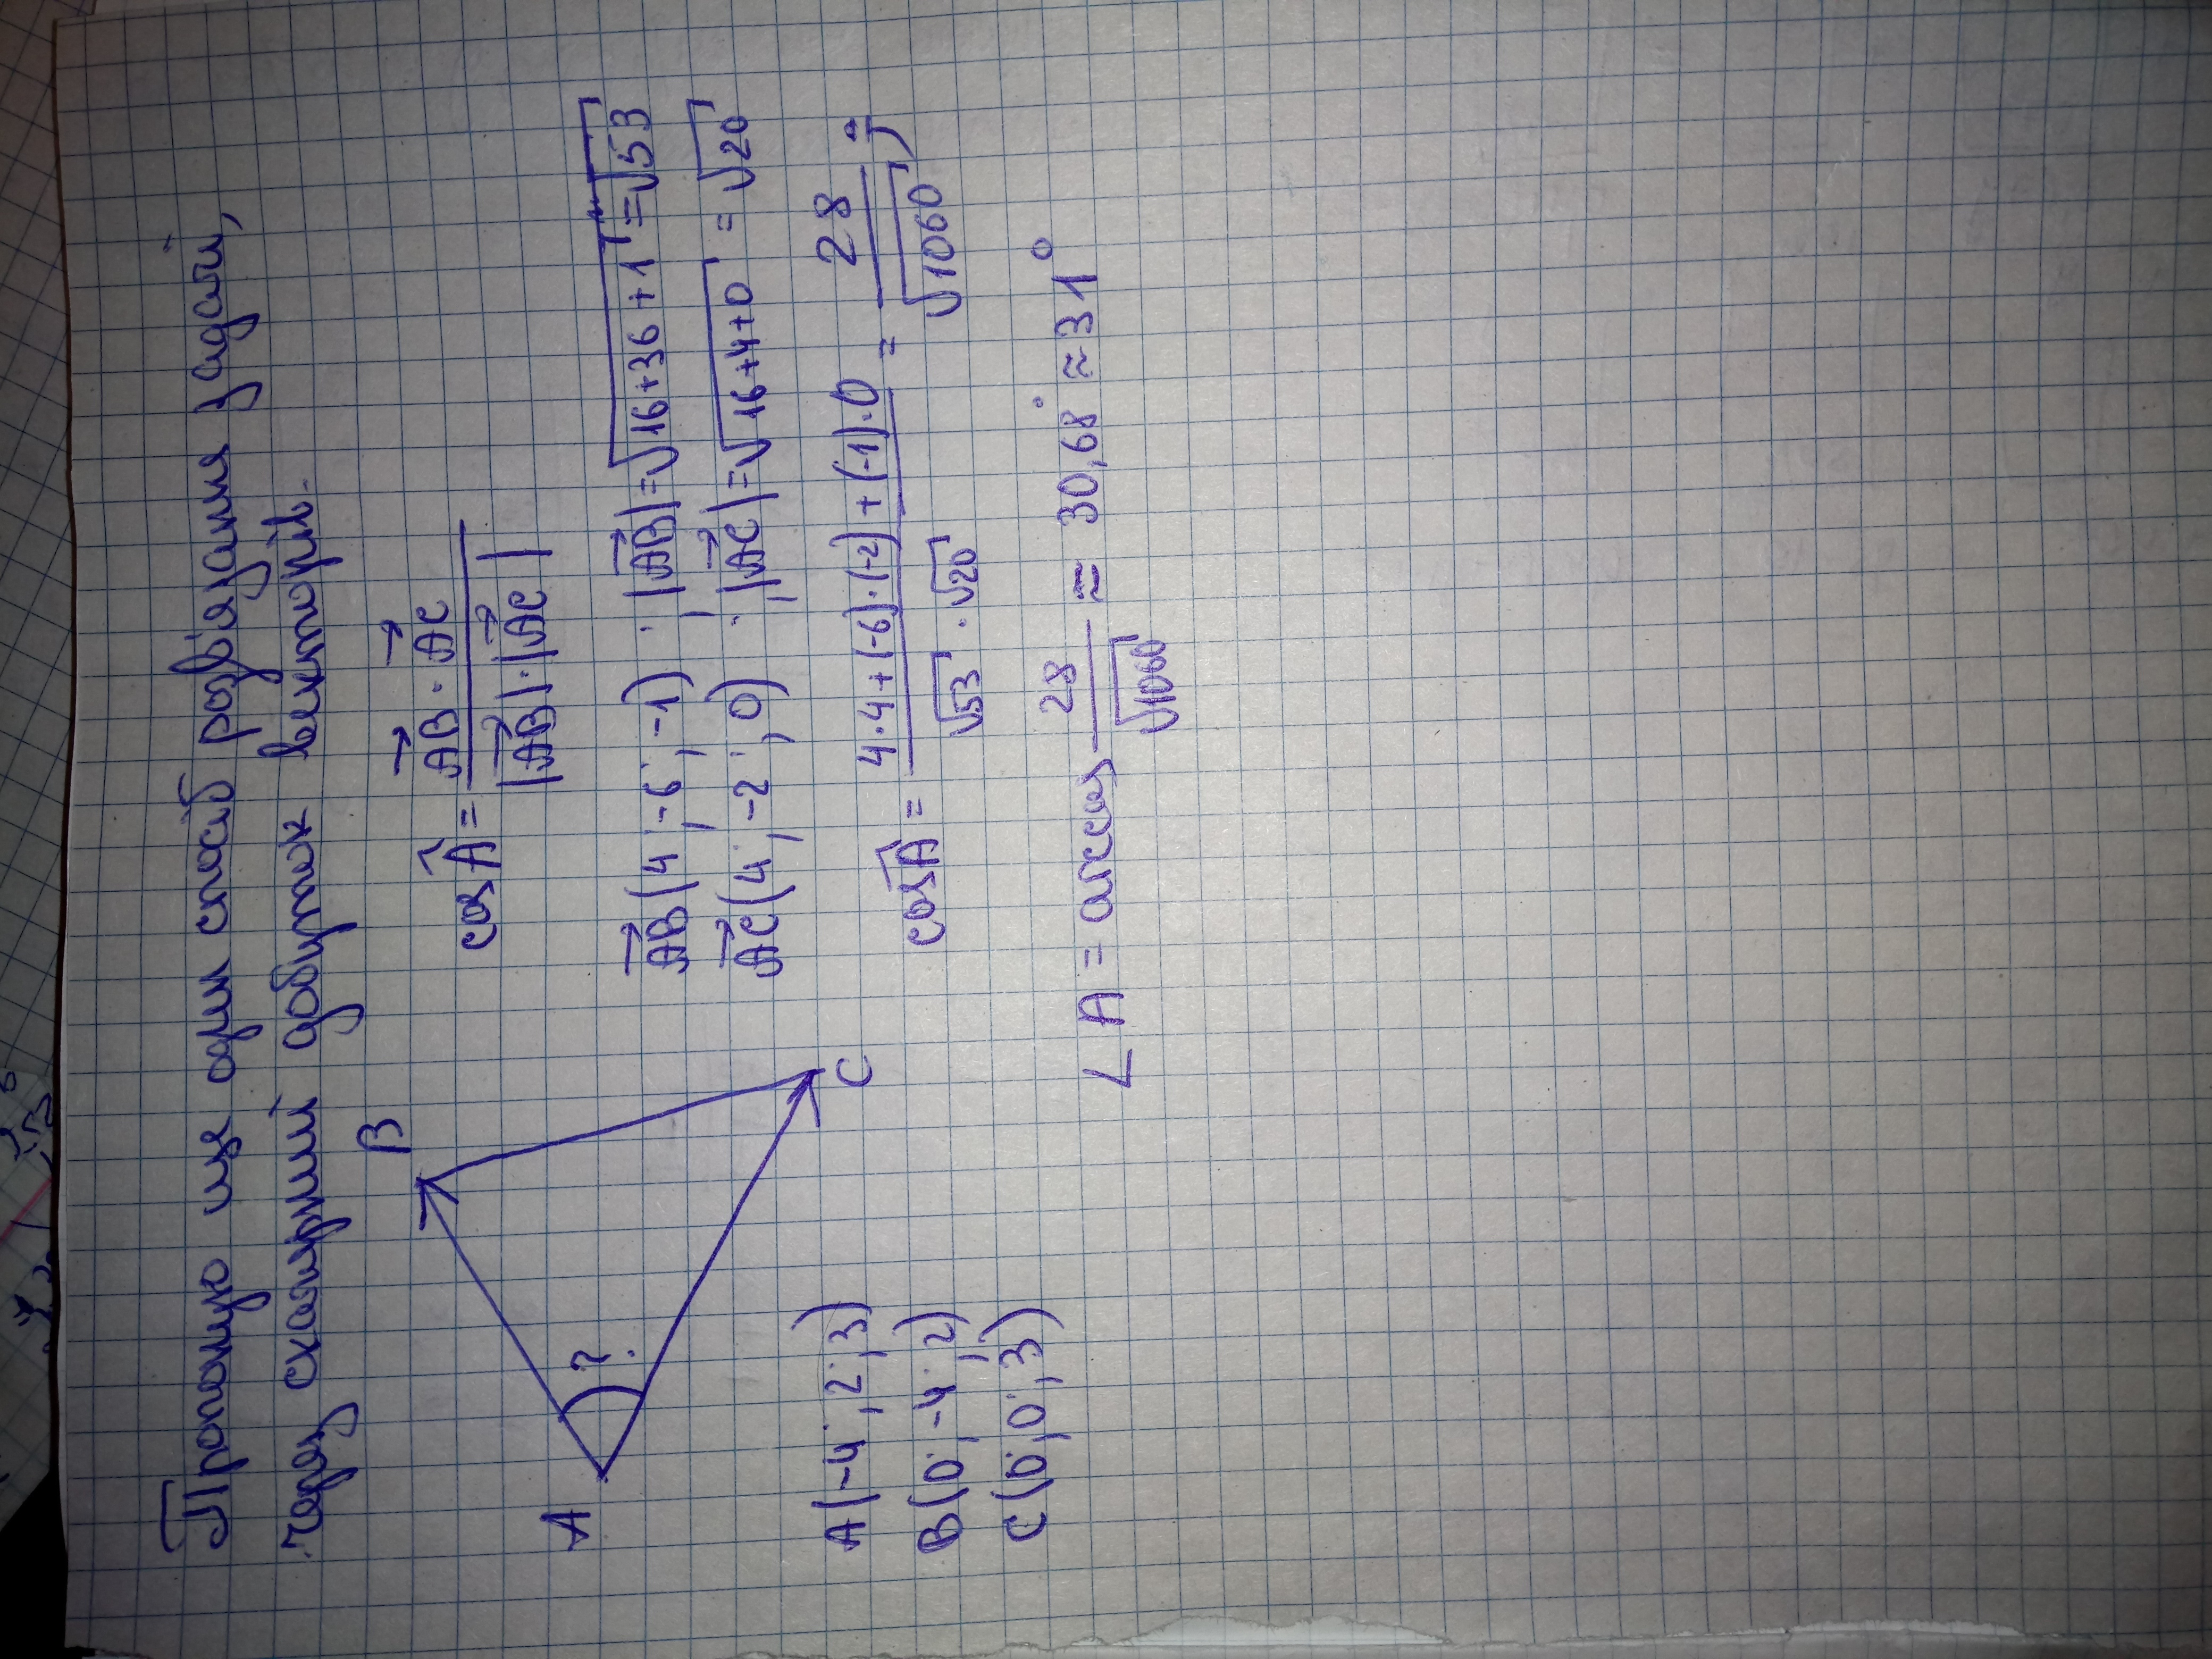 Пропоную ще один спосіб розв'язання задачі,
через скалярний добуток векторів.
B
A
?
C
cos Â = AB · AC / |AB| · |AC|
AB (4; -6; -1); |AB| = √16+36+1 = √53
AC (4; -2; 0); |AC| = √16+4+0 = √20
cos Â = 4·4+(-6)·(-2)+(-1)·0 / √53 · √20 = 28 / √1060;
A(-4; 2; 3)
B(0; -4; 2)
C(0; 0; 3)
∠A = arccos 28 / √1060 ≈ 30,68° ≈ 31°